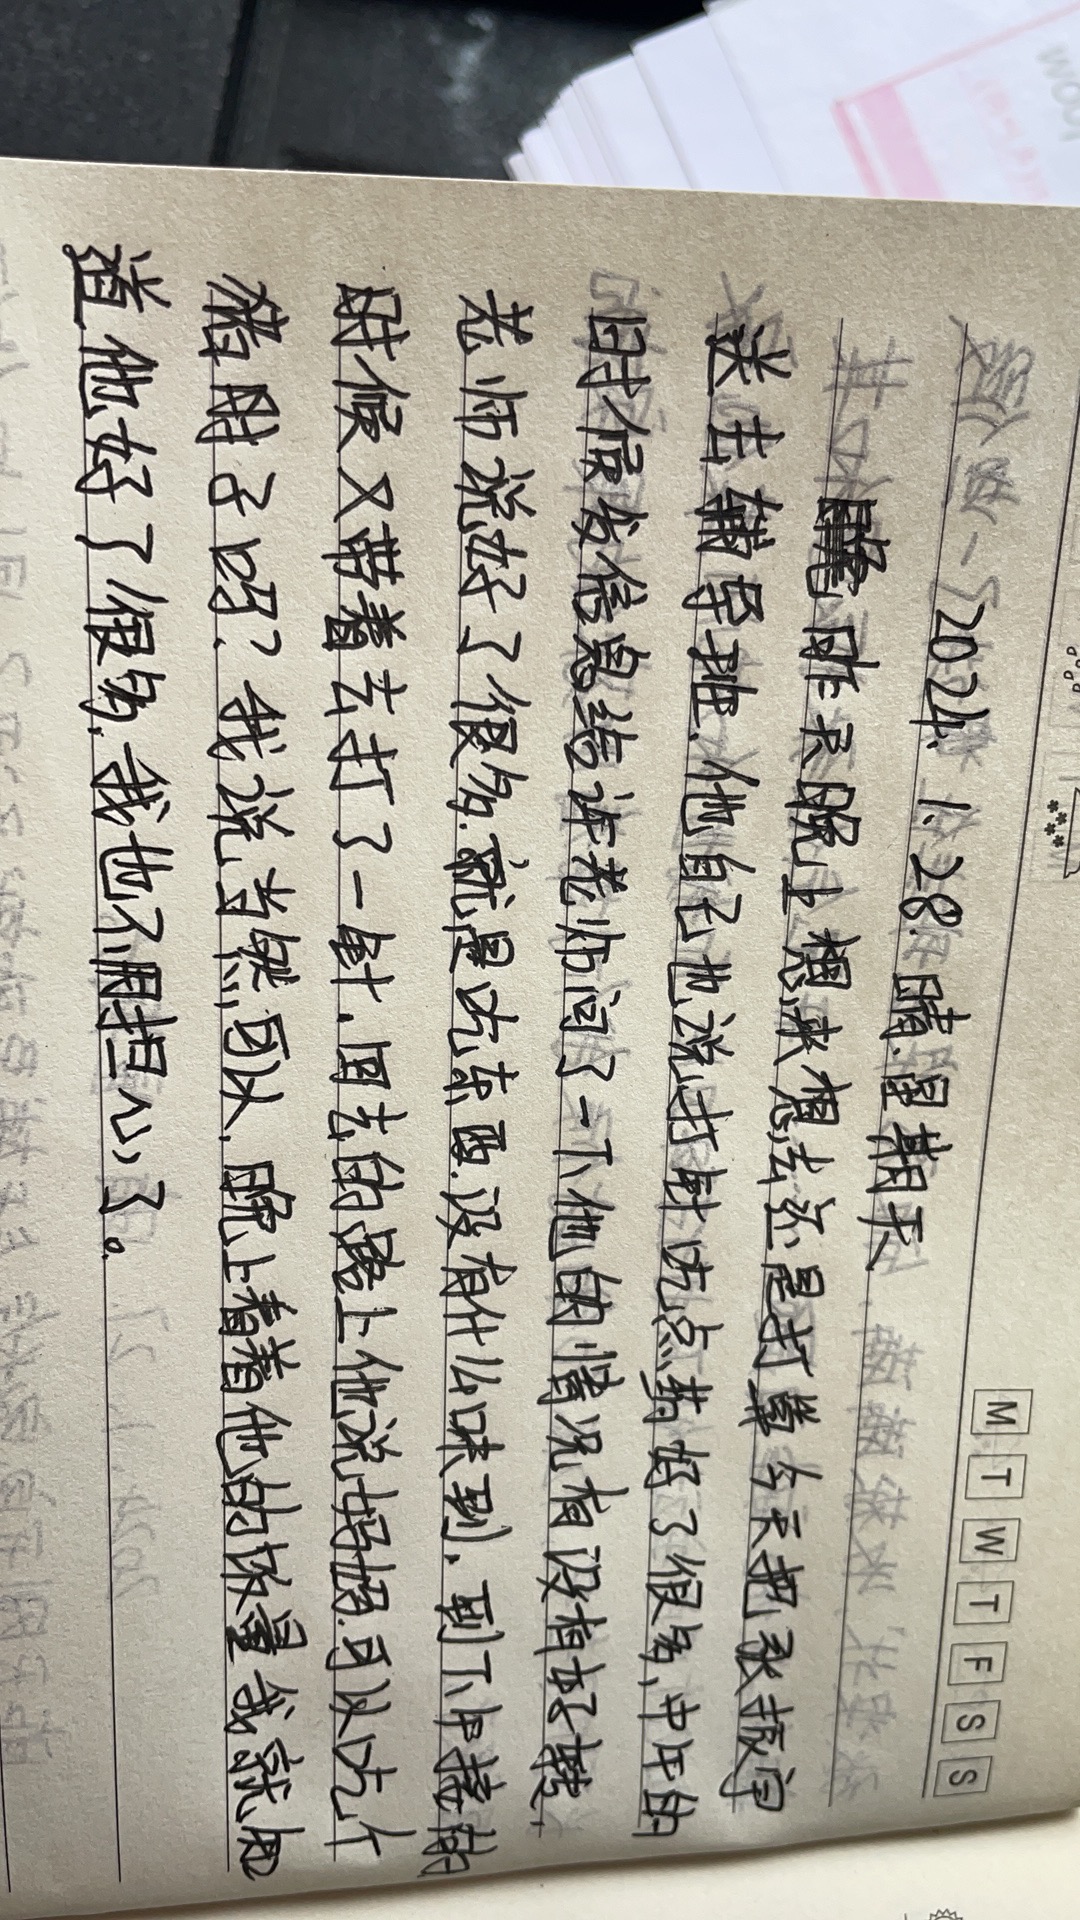 2024. 1. 28. 晴. 星期天
昨天晚上想来想去还是打算今天把张振宇
送去辅导班. 他自己也说打针吃点药好了很多, 中午的
时候发信息给许老师问了一下他的情况有没有好转,
老师说好了很多. 就是吃东西. 没有什么味到, 到下午接的
时候又带着去打了一针. 回去的路上他说妈妈. 可以吃个
猪肘子吗? 我说当然可以, 晚上看着他的饭量我就知
道他好了很多, 我也不用担心了。
M T W T F S S